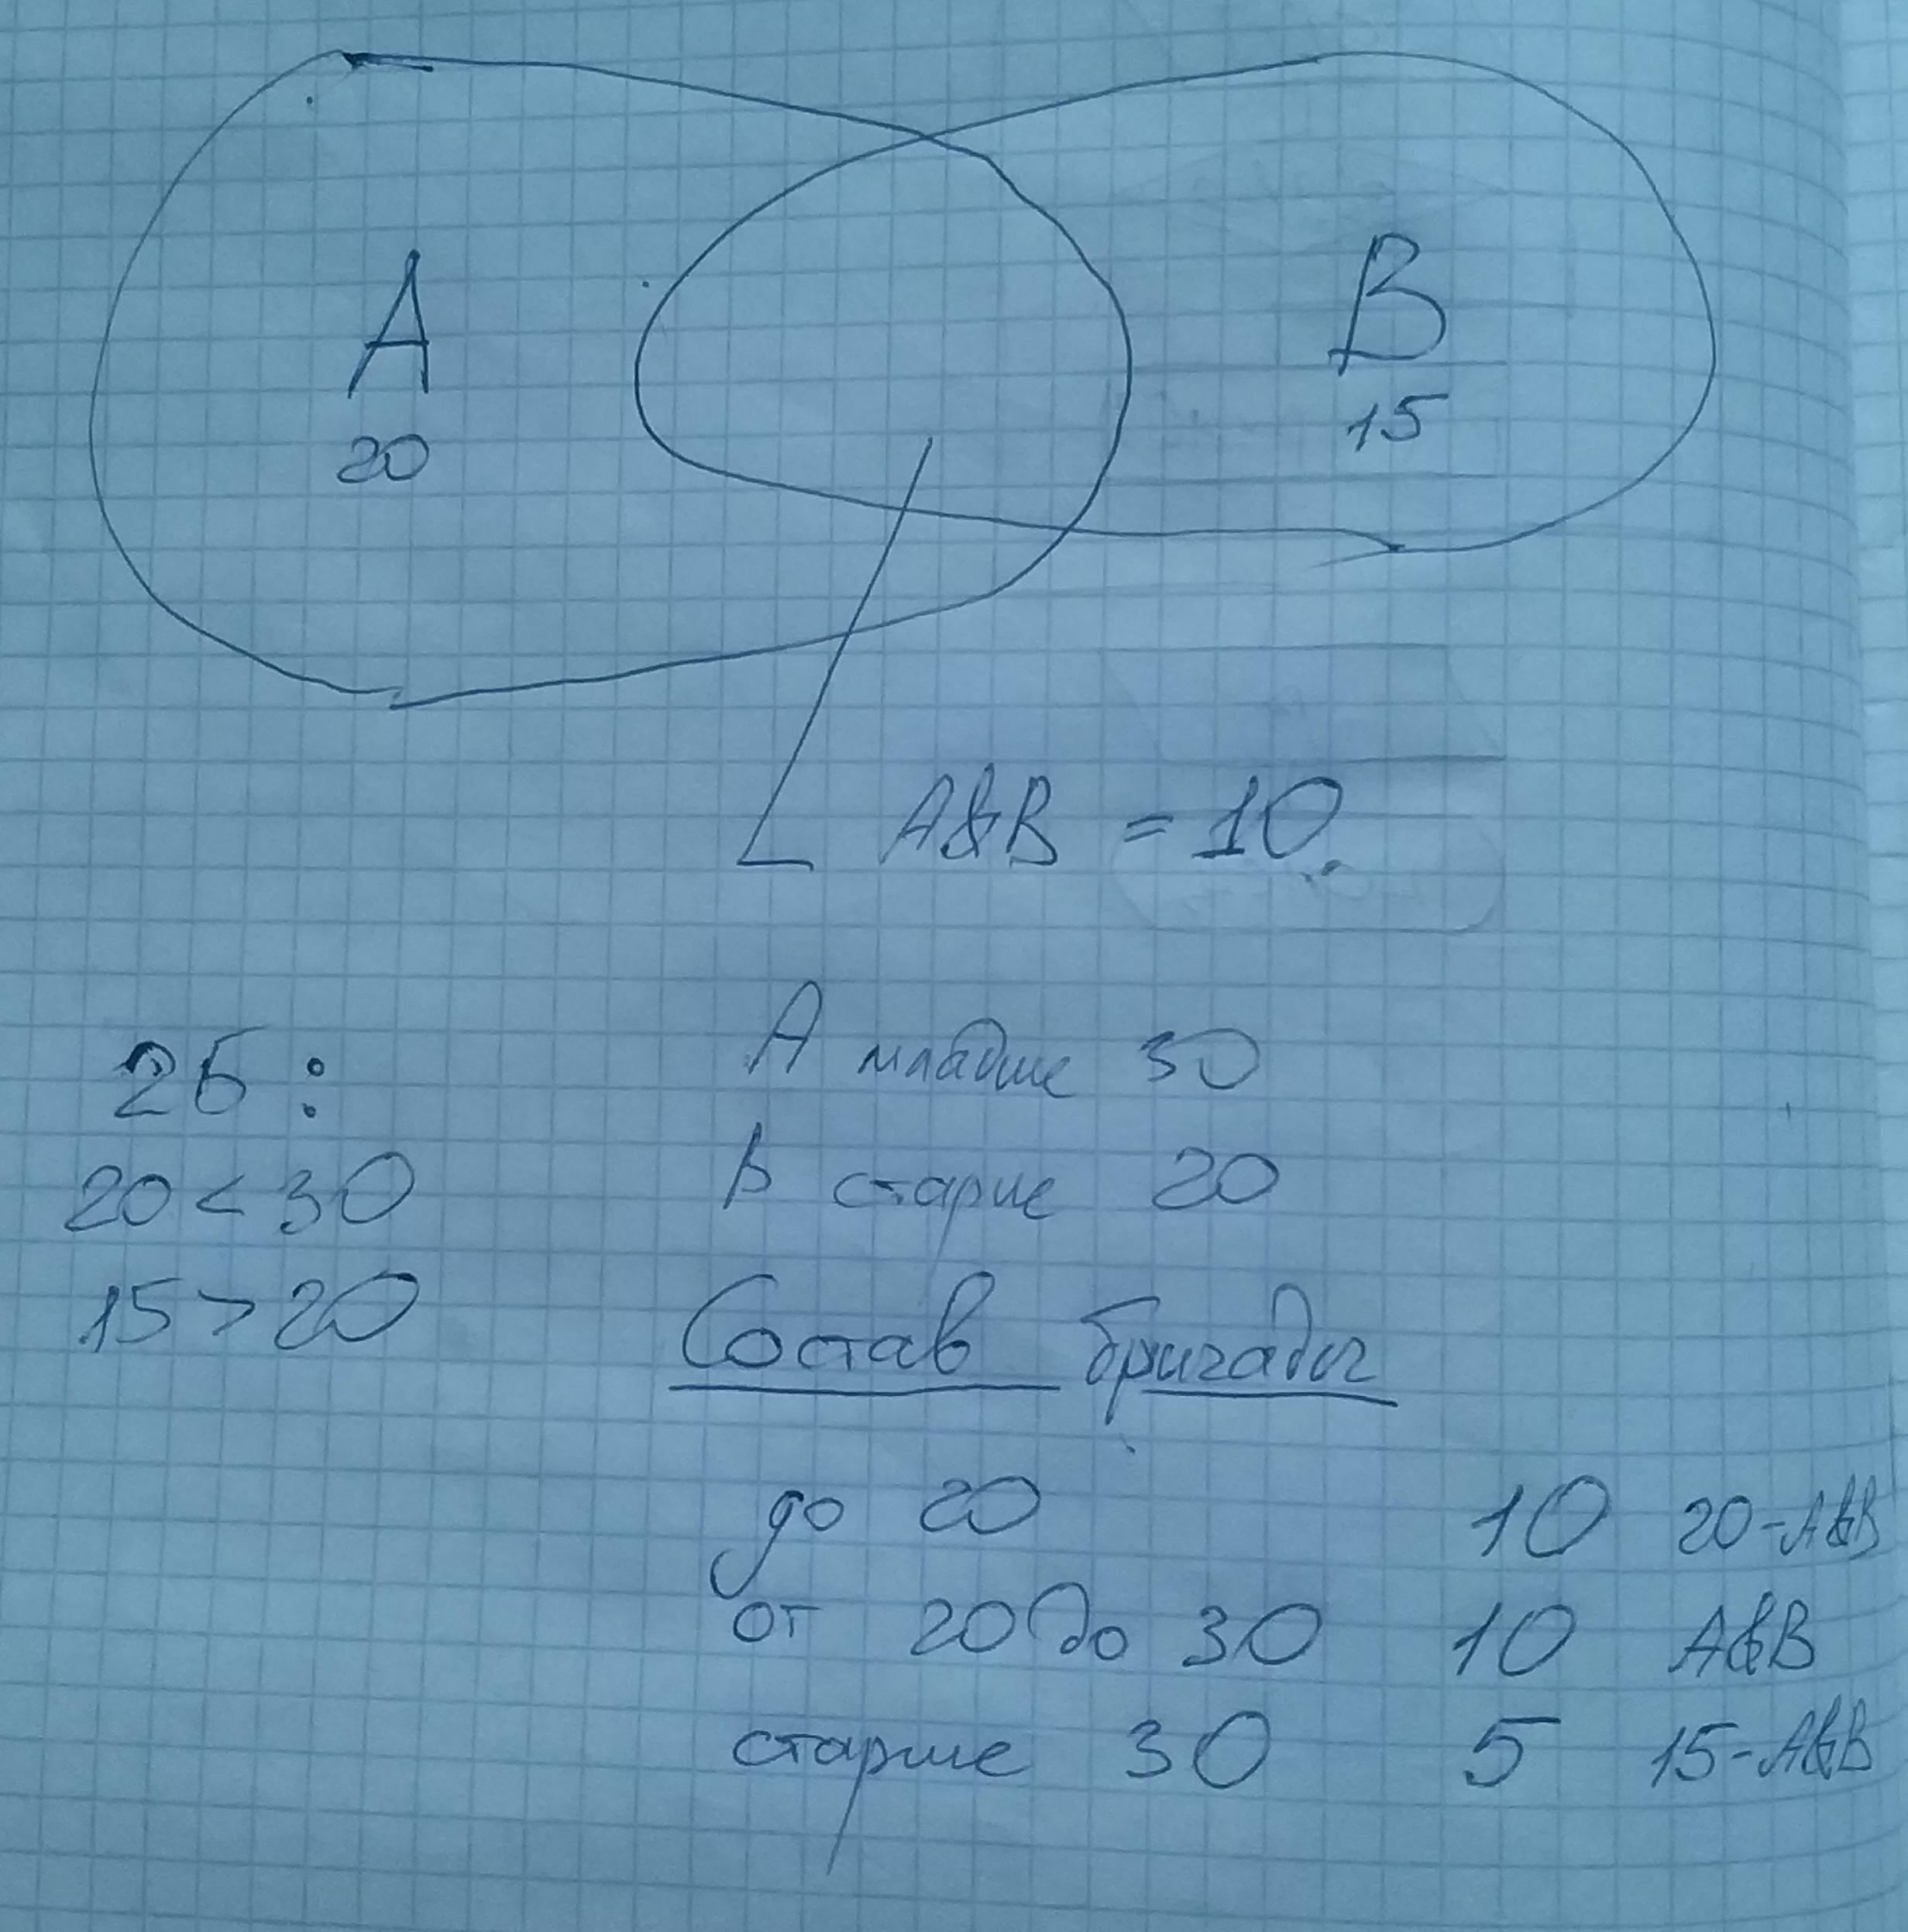 A
20
B
15
A&B = 10
25 :
20 < 30
15 > 20
A младше 30
B старше 20
Состав бригады
до 20 10 20-A&B
от 20 до 30 10 A&B
старше 30 5 15-A&B